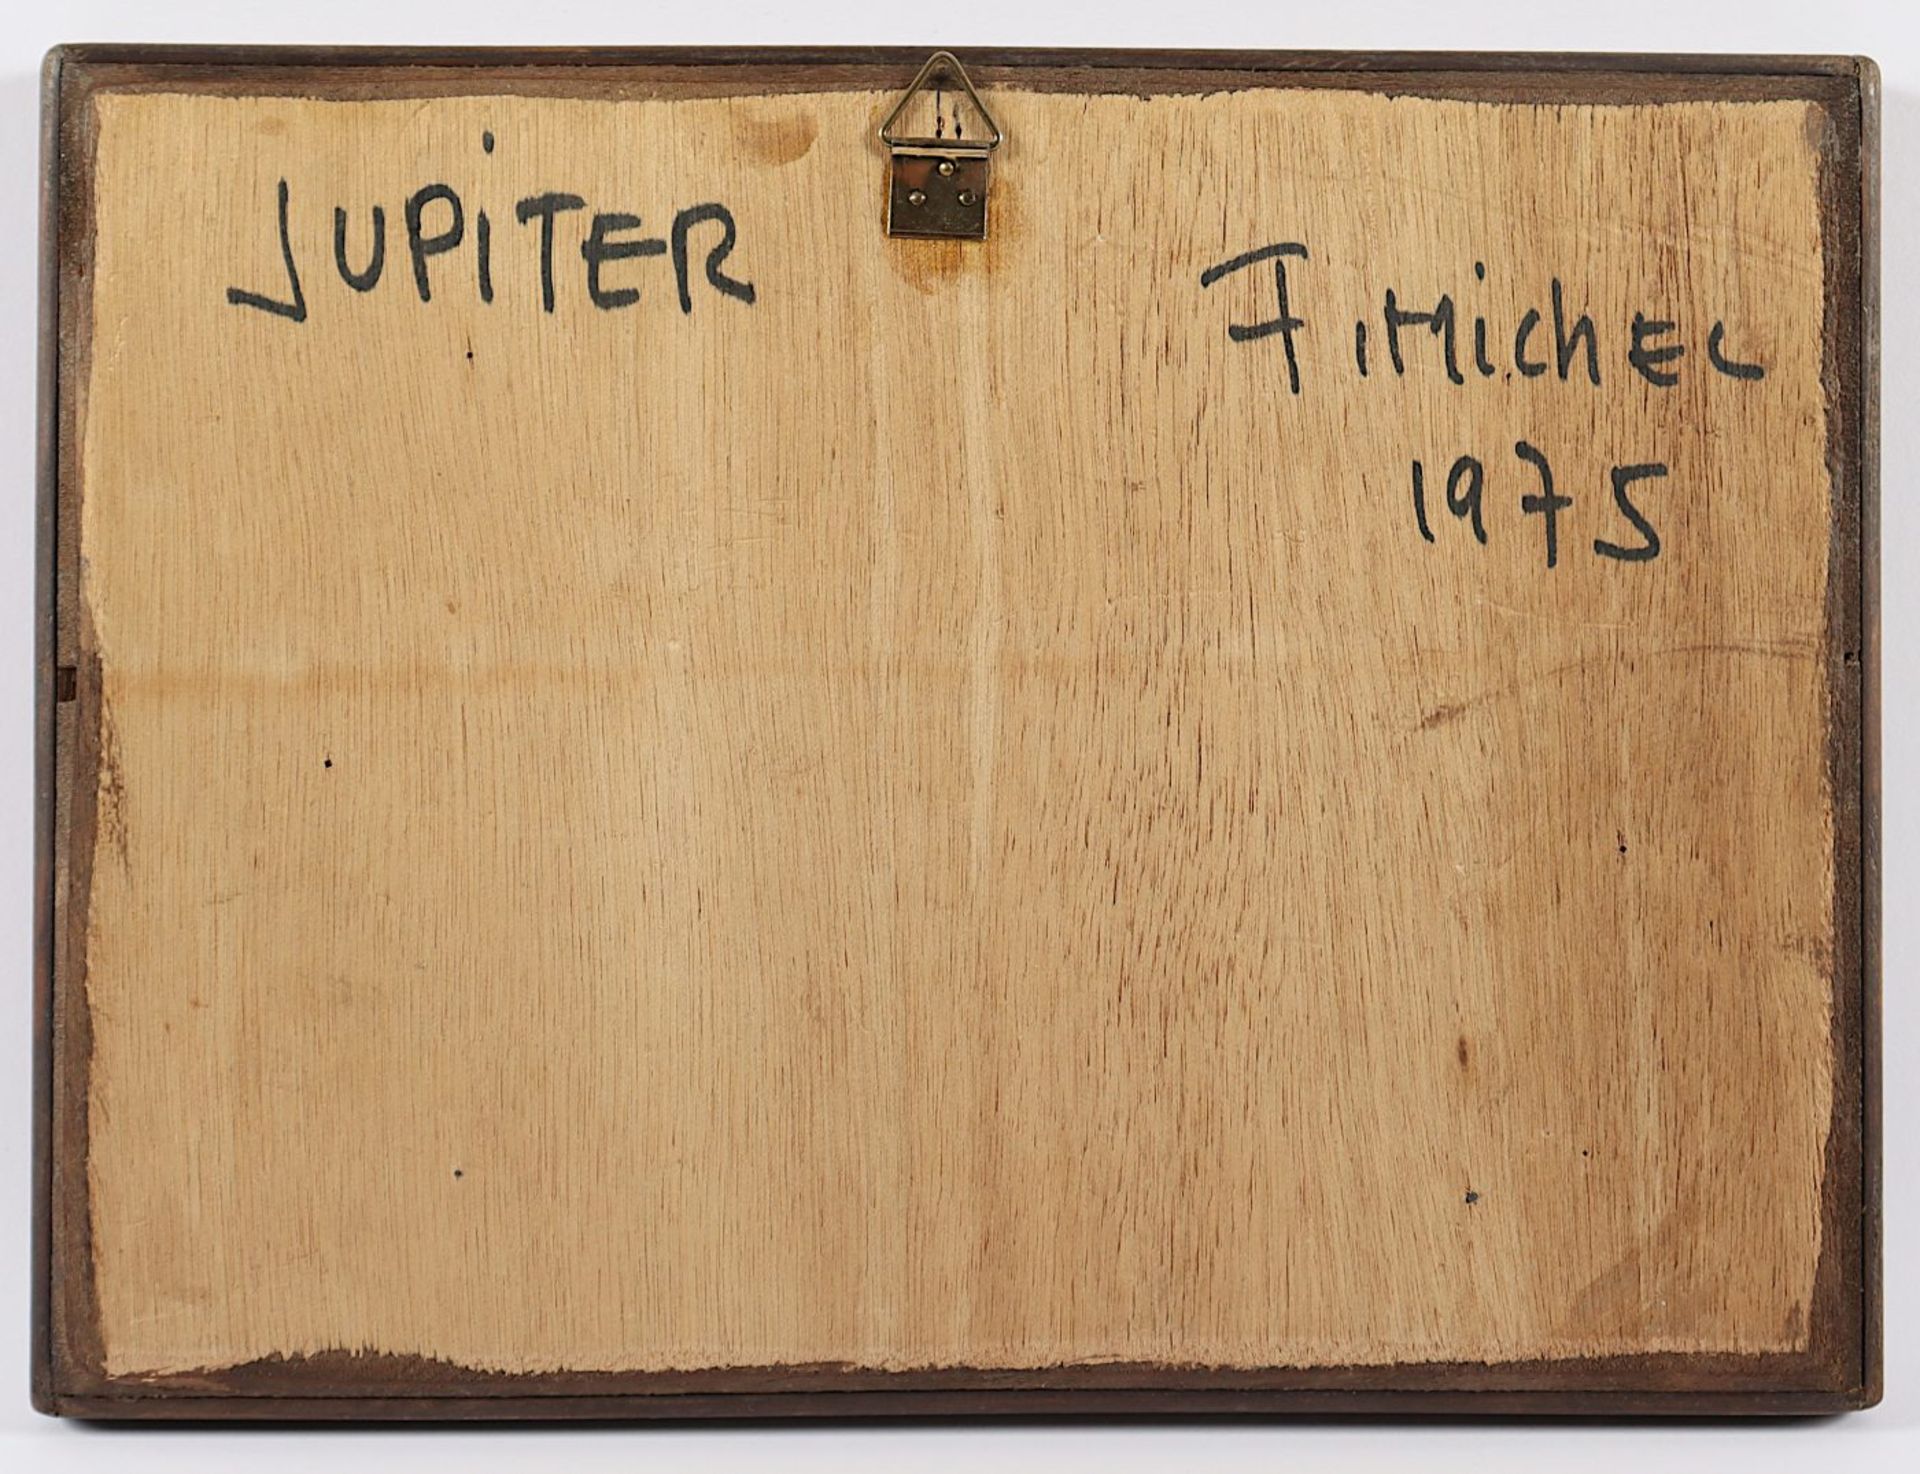 JUPiTER
F. MichEL
1975